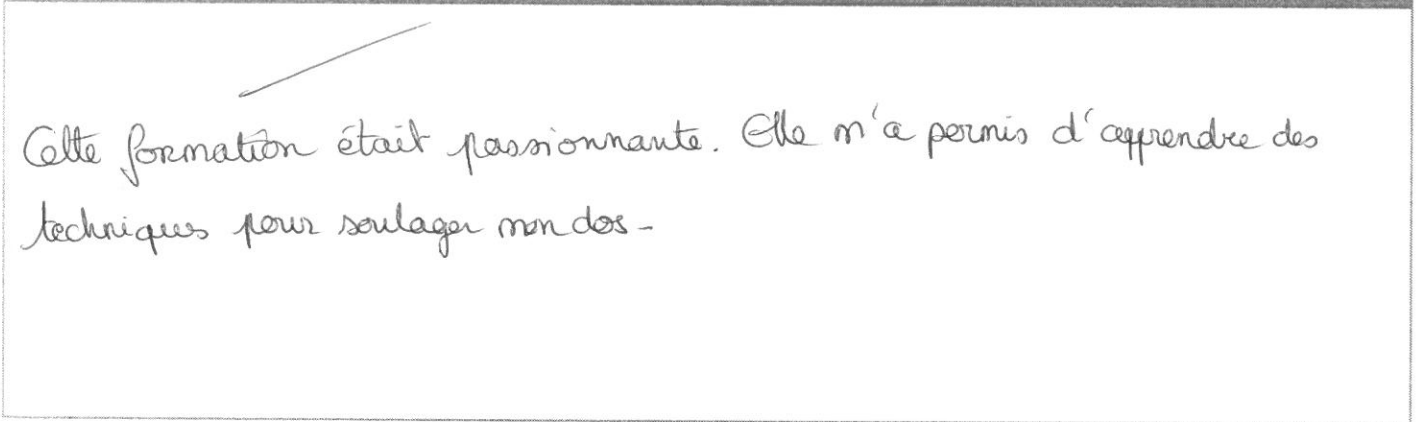 Cette formation était passionnante. Elle m'a permis d'apprendre des
techniques pour soulager mon dos -